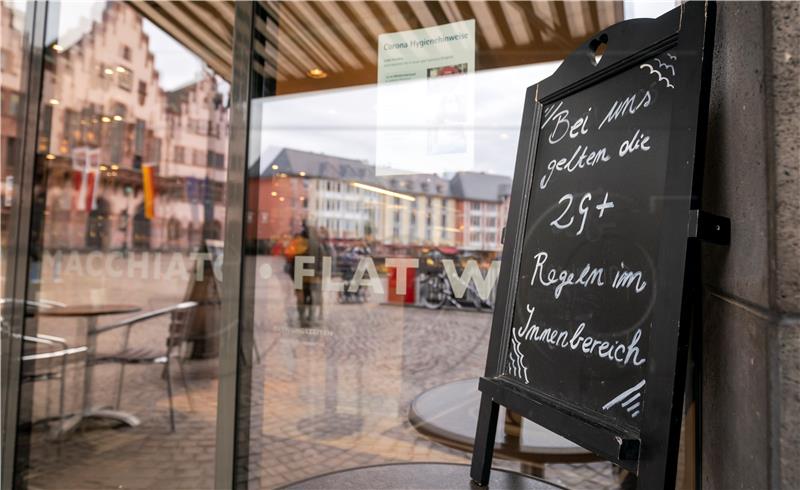 Corona Hygienehinweise
Bei uns
gelten die
2G+
Regeln im
Innenbereich
MACCHIATO • FLAT W